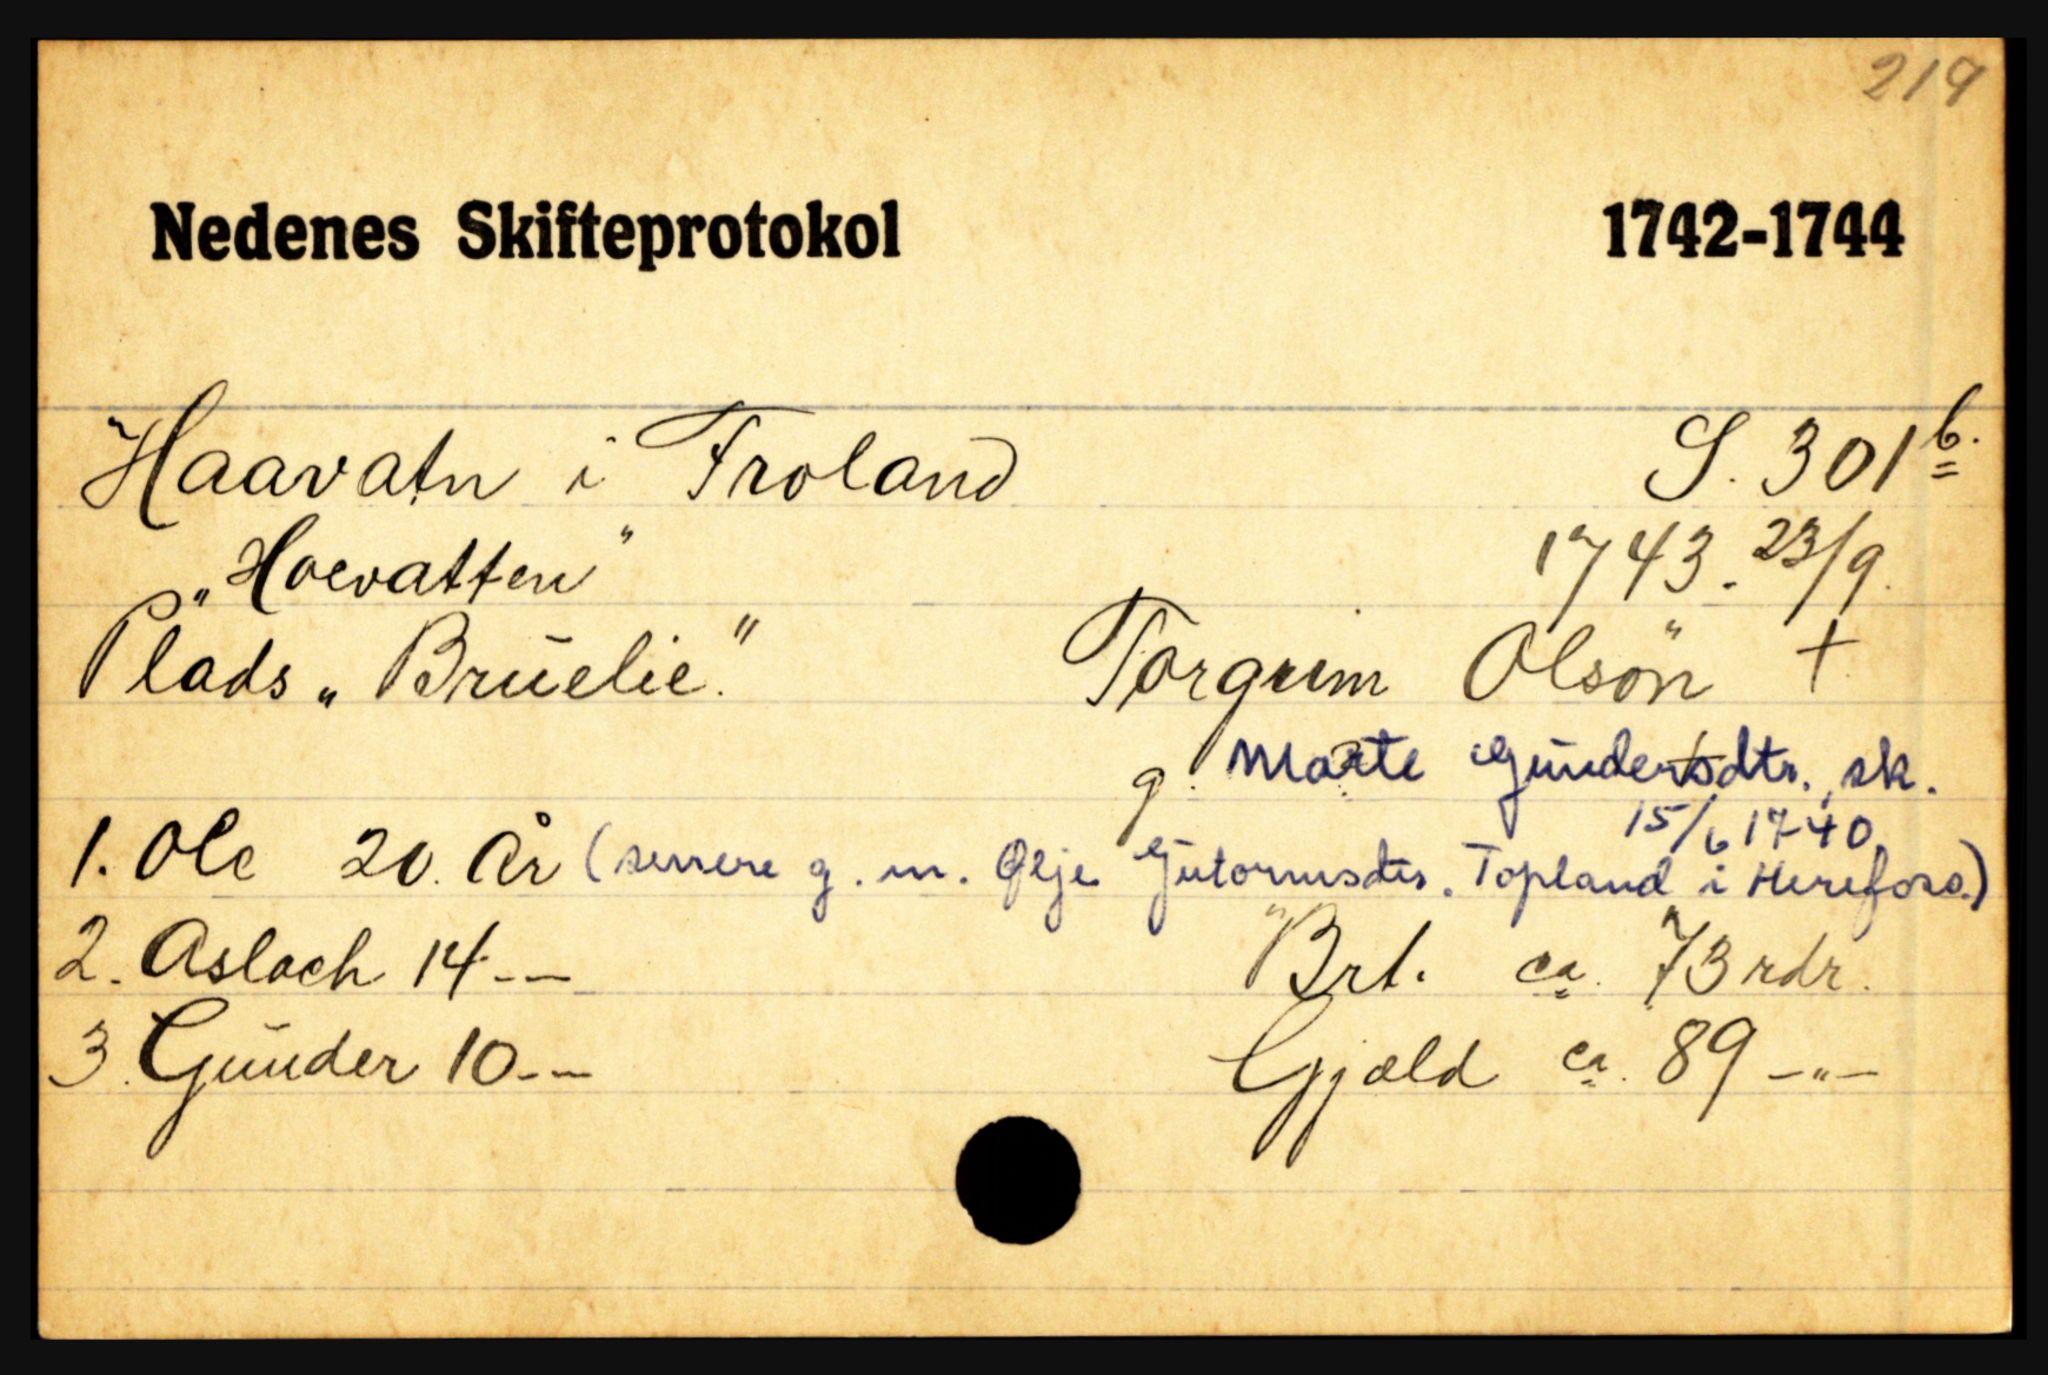 219
Nedenes Skifteprotokol 1742-1744
Haavatn i Froland S. 301 b.
"Hoevatten" 1743. 23/9.
Plads "Brüelie." Torgrim Olsön +
g. Marte Gundersdtr., sk. 15/6 1740.
1. Ole 20. År (senere g. m. Øljе Gutormsdtr. Topland i Herefoss.)
2. Aslach 14 -- Brt. ca. 73 rdr.
3. Gunder 10 -- Gjæld ca. 89 -"-